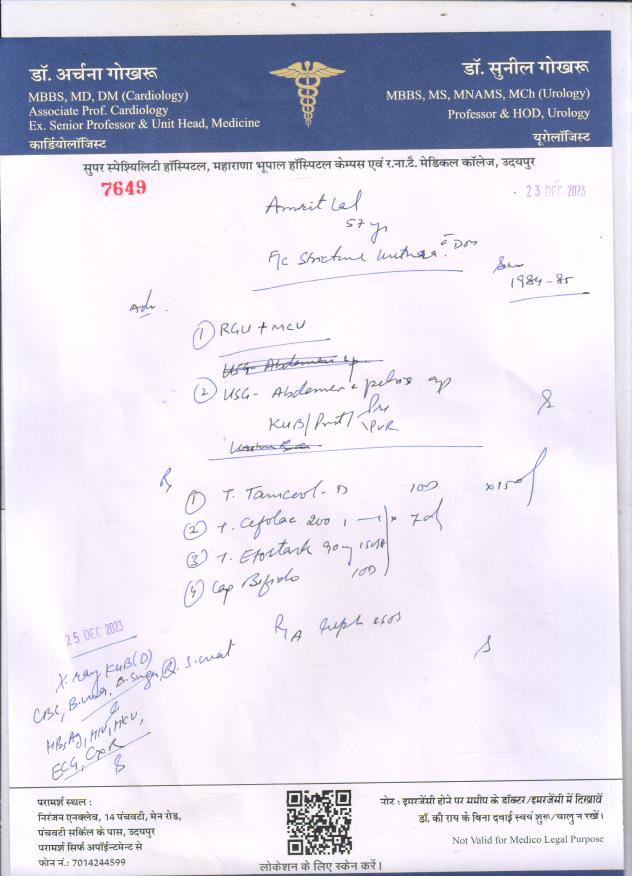 डॉ. अर्चना गोखरू
MBBS, MD, DM (Cardiology)
Associate Prof. Cardiology
Ex. Senior Professor & Unit Head, Medicine
कार्डियोलॉजिस्ट
डॉ. सुनील गोखरू
MBBS, MS, MNAMS, MCh (Urology)
Professor & HOD, Urology
यूरोलॉजिस्ट
सुपर स्पेश्यिलिटी हॉस्पिटल, महाराणा भूपाल हॉस्पिटल केम्पस एवं र.ना.टै. मेडिकल कॉलेज, उदयपुर
7649
23 DEC 2023
Amrit Lal
57 yr
F/c Stricture urethra
1984-85
Adv.
① RGU + MCU
USG- Abdomen
② USG- Abdomen & pelvis
KUB/Prost/Pre
PVR
Rx
① T. 10D x15d
② T. Cefolac 200 1—1 x 7d
③ T. 90mg
④ Cap 10D
25 DEC 2023
X-ray KUB (D)
CBC, B.urea, B.Sugar, S.creat
HBsAg, HIV, HCV,
ECG, CXR
परामर्श स्थल :
निरंजन एनक्लेव, 14 पंचवटी, मेन रोड,
पंचवटी सर्किल के पास, उदयपुर
परामर्श सिर्फ अपॉईन्टमेन्ट से
फोन नं.: 7014244599
लोकेशन के लिए स्केन करें।
नोट : इमरजेंसी होने पर समीप के डॉक्टर/इमरजेंसी में दिखावें
डॉ. की राय के बिना दवाई स्वयं शुरू/चालु न रखें।
Not Valid for Medico Legal Purpose